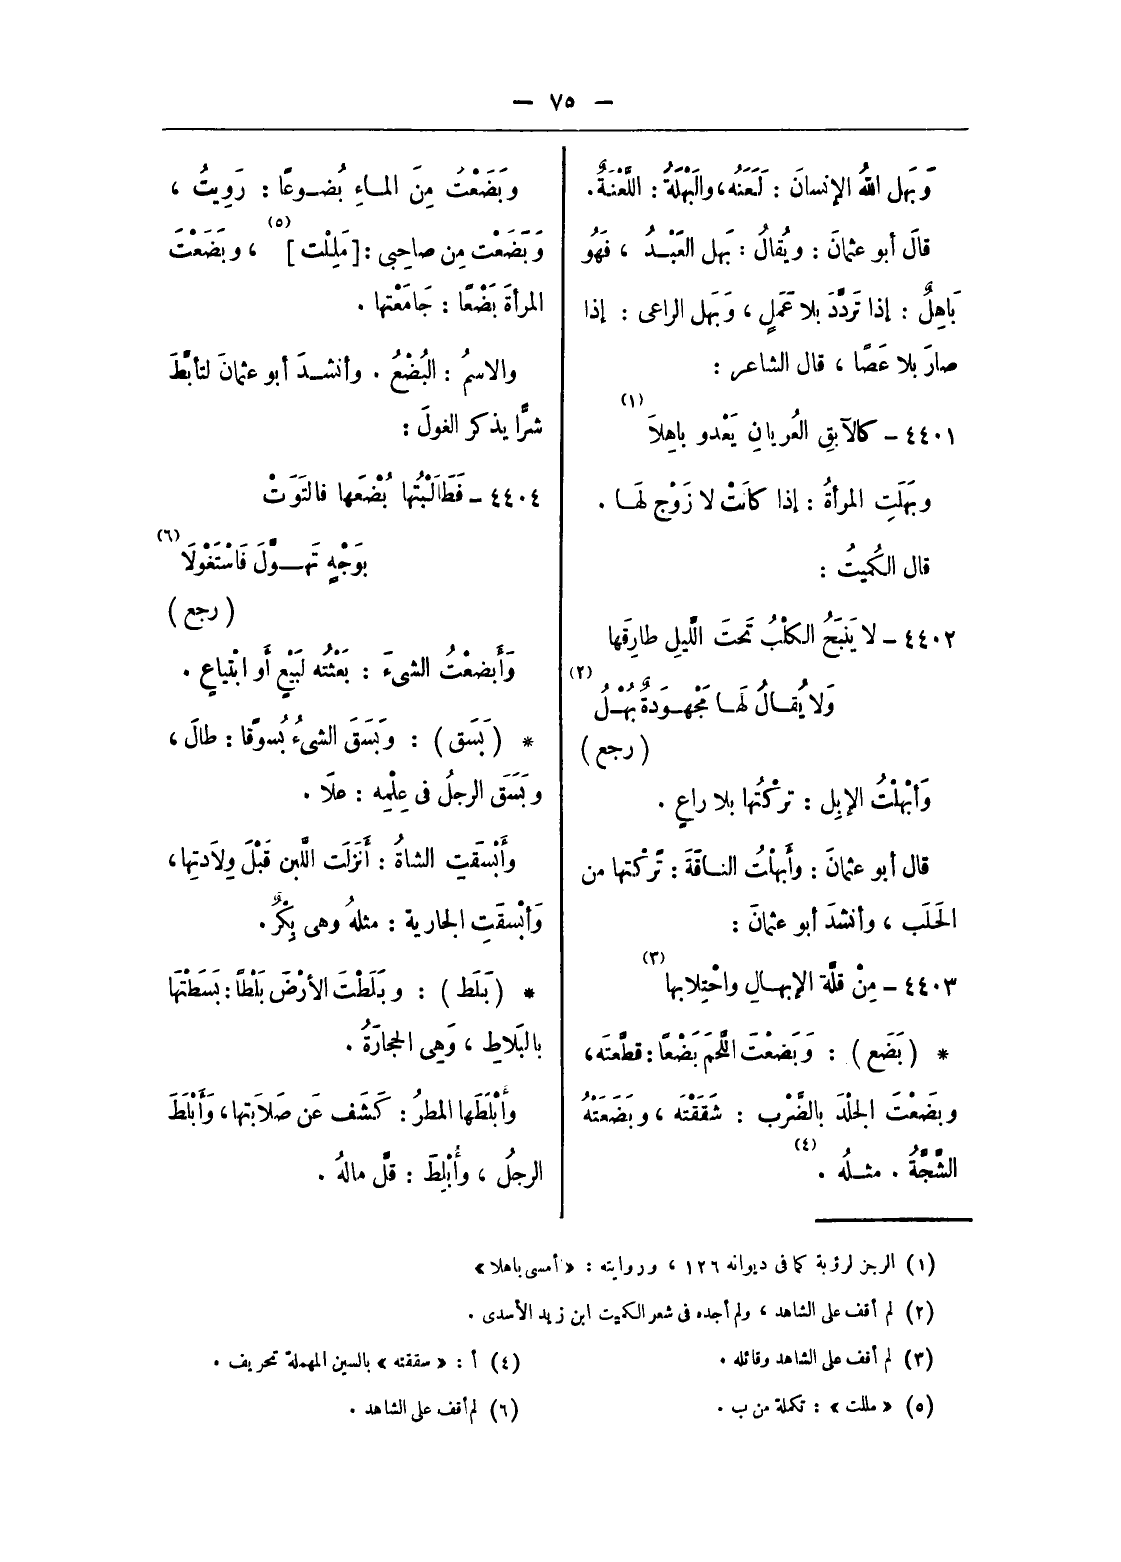 — ٧٥ —
وَبَهل اللهُ الإنسانَ : لَعَنَه، والبَهْلَةُ : اللَّعْنَةُ.
قالَ أبو عثمانَ : ويُقالُ : بَهل العَبْدُ ، فَهُو
بَاهِلٌ : إذا تَردَّدَ بلا عَمَلٍ ، وَبَهل الراعى : إذا
صارَ بلا عَصًا ، قال الشاعر :
٤٤٠١ – كالآبِقِ العُريانِ يَعْدو باهِلاَ (١)
وبَهَلَتِ المرأةُ : إذا كانَتْ لا زَوْج لهَا .
قال الكُميتُ :
٤٤٠٢ – لا يَنبَحُ الكلْبُ تَحتَ اللَّيلِ طارِقَها
وَلا يُقالُ لهَا مَجْهودَةٌ بُهْلُ (٢)
( رجع )
وَأبْهلْتُ الإبِل : تركْتُها بلا راعٍ .
قال أبو عثمانَ : وأَبهلْتُ الناقَةَ : تَركْتها من
الحَلَب ، وأنشدَ أبو عثمانَ :
٤٤٠٣ – مِنْ قلَّة الإبهالِ واحْتِلابها (٣)
* ( بَضَع ) : وَبَضعْتَ اللَّحمَ بَضْعًا : قطَّعتَه،
وبضَعْتَ الجلْدَ بالضَّرْب : شَقَقْتَه ، وبَضَعَتْهُ
الشَّجَّةُ . مثلُه (٤) .
وبَضَعْتُ مِنَ الماءِ بُضوعًا : رَوِيتُ ،
وَبَضَعْت مِن صاحِبى : [ مَلِلْت ] (٥) ، وبَضَعْتَ
المرأةَ بَضْعًا : جَامَعْتها .
والاسمُ : البُضْعُ . وأنشدَ أبو عثمانَ لتأبَّطَ
شرًّا يذكر الغولَ :
٤٤٠٤ – فَطَالَبْتُها بُضْعَها فالتَوَتْ
بوَجْهٍ تَهوَّلَ فَاسْتَغْولَا (٦)
( رجع )
وَأَبضعْتُ الشىءَ : بَعَثْتُه لبَيْعٍ أَو ابْتياعٍ .
* ( بَسَق ) : وَبَسَقَ الشىءُ بُسوقًا : طالَ ،
وبَسَق الرجلُ فى عِلْمِه : علَا .
وأَبْسقَتِ الشاةُ : أَنزَلَت اللَّبن قَبْلَ وِلاَدتِها،
وَأبْسقَتِ الجارية : مثلهُ وهى بِكْرٌ .
* ( بَلَط ) : وبَلَطْتَ الأرْضَ بَلْطًا : بَسَطتْها
بالبَلاطِ ، وَهِى الحجارَةُ .
وأبْلَطَها المطرُ : كَشَف عَن صَلاَبتِها، وَأَبْلَطَ
الرجلُ ، وأُبْلِطَ : قلَّ مالهُ .
(١) الرجز لرؤبة كما فى ديوانه ١٢٦ ، وروايته : « أمسى باهلا »
(٢) لم أقف على الشاهد ، ولم أجده فى شعر الكميت ابن زيد الأسدى .
(٣) لم أقف على الشاهد وقائله .
(٤) أ : « سققته » بالسين المهملة تحريف .
(٥) « مللت » : تكملة من ب .
(٦) لم أقف على الشاهد .